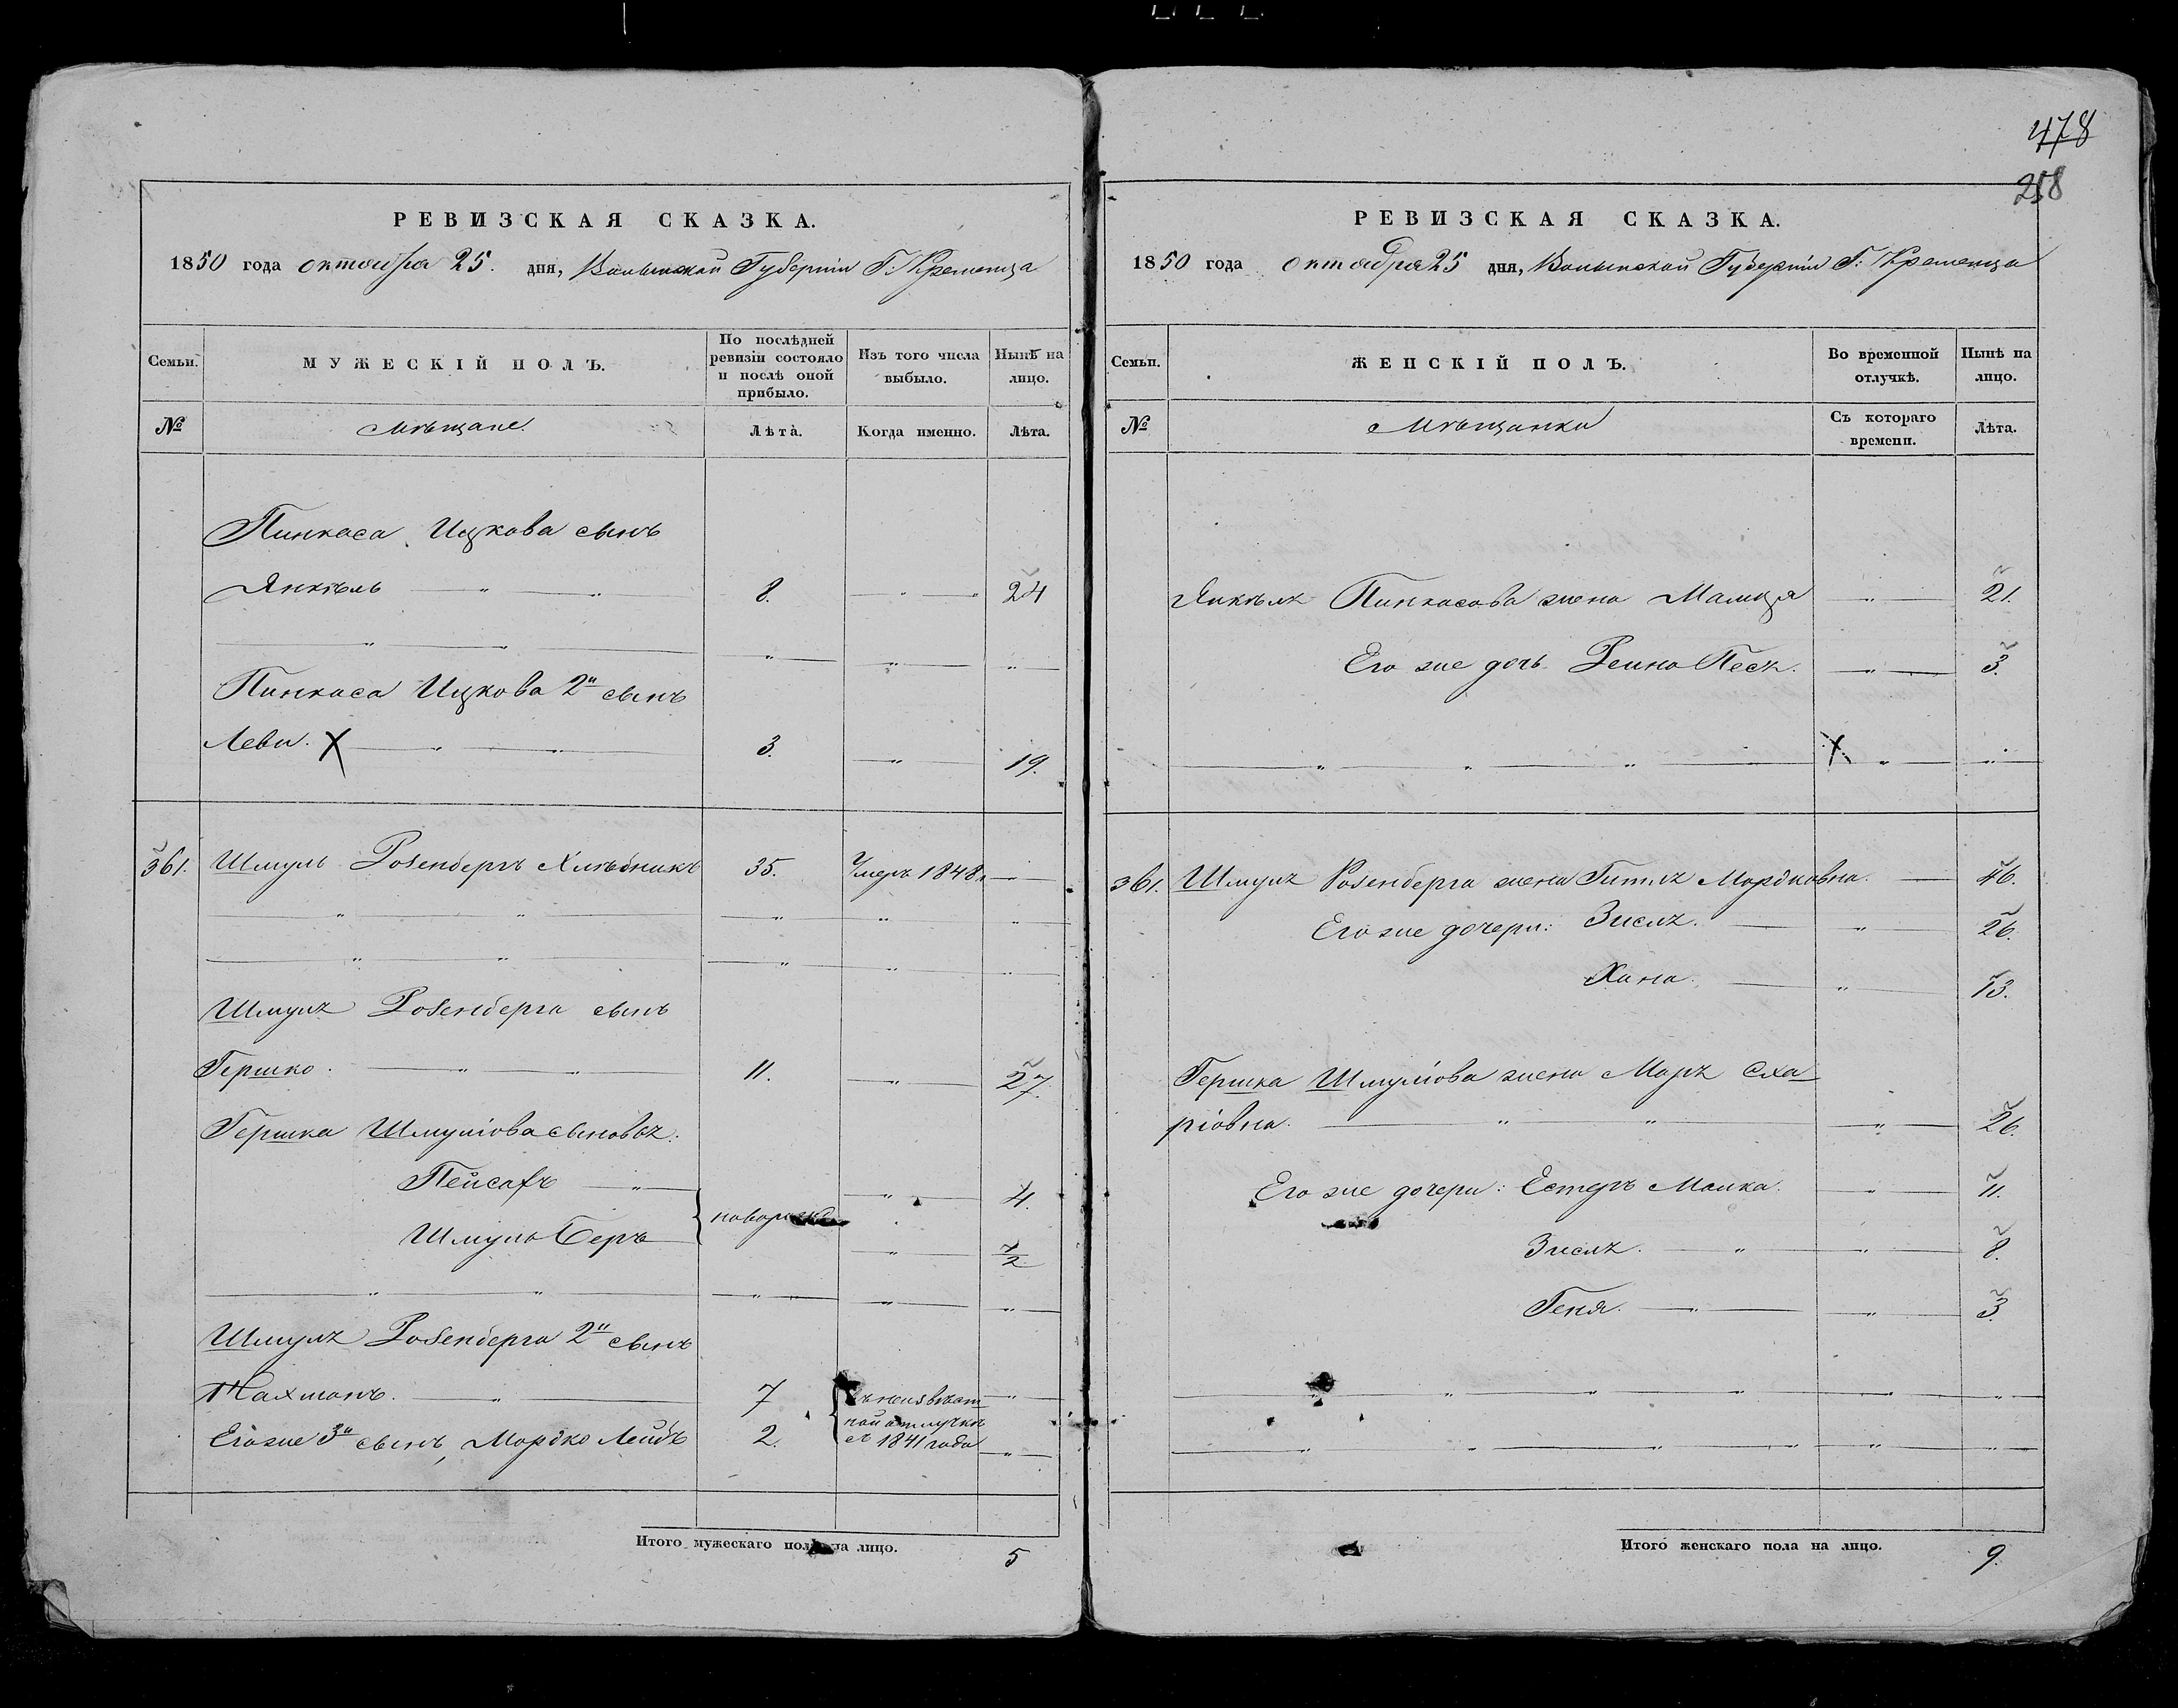 478
258
РЕВИЗСКАЯ СКАЗКА.
1850 года октября 25. дня, Волынской Губерніи Г. Кременца
Семьи.
МУЖЕСКІЙ ПОЛЪ.
По послѣдней ревизіи состояло и послѣ оной прибыло.
Изъ того числа выбыло.
Нынѣ на лицо.
№
Мѣщане.
Лѣта.
Когда именно.
Лѣта.
Пинкаса Ицкова сынъ
Янкѣль 8. 24
Пинкаса Ицкова 2й сынъ
Леви. X 3. 19.
361. Шмуль Розенбергъ Хлѣбникъ 35. Умеръ 1848.
Шмуля Розенберга сынъ
Гершко. 11. 27.
Гершка Шмуліова сыновья:
Пейсахъ 4.
новорожд
Шмуль Беръ 2
Шмуля Розенберга 2й сынъ
Нахманъ. 7 въ неизвѣст
ной отлучкѣ
Его же 3й сынъ, Мордко Лейбъ 2. съ 1841 года
Итого мужескаго пола на лицо. 5
РЕВИЗСКАЯ СКАЗКА.
1850 года октября 25 дня, Волынской Губерніи Г: Кременца
Семьи.
ЖЕНСКІЙ ПОЛЪ.
Во временной отлучкѣ.
Нынѣ на лицо.
№
Мѣщанки
Съ котораго времени.
Лѣта.
Янкѣля Пинкасова жена Малица 21.
Его же дочь Рейна Песя. 3.
X
361. Шмуля Розенберга жена Гитля Мордковна. 46.
Его же дочери: Зисля. 26.
Хана. 13.
Гершка Шмуліова жена Маря Сха-
ріовна. 26.
Его же дочери: Естеръ Малка. 11.
Зисля. 8.
Геня. 3.
Итого женскаго пола на лицо. 9.